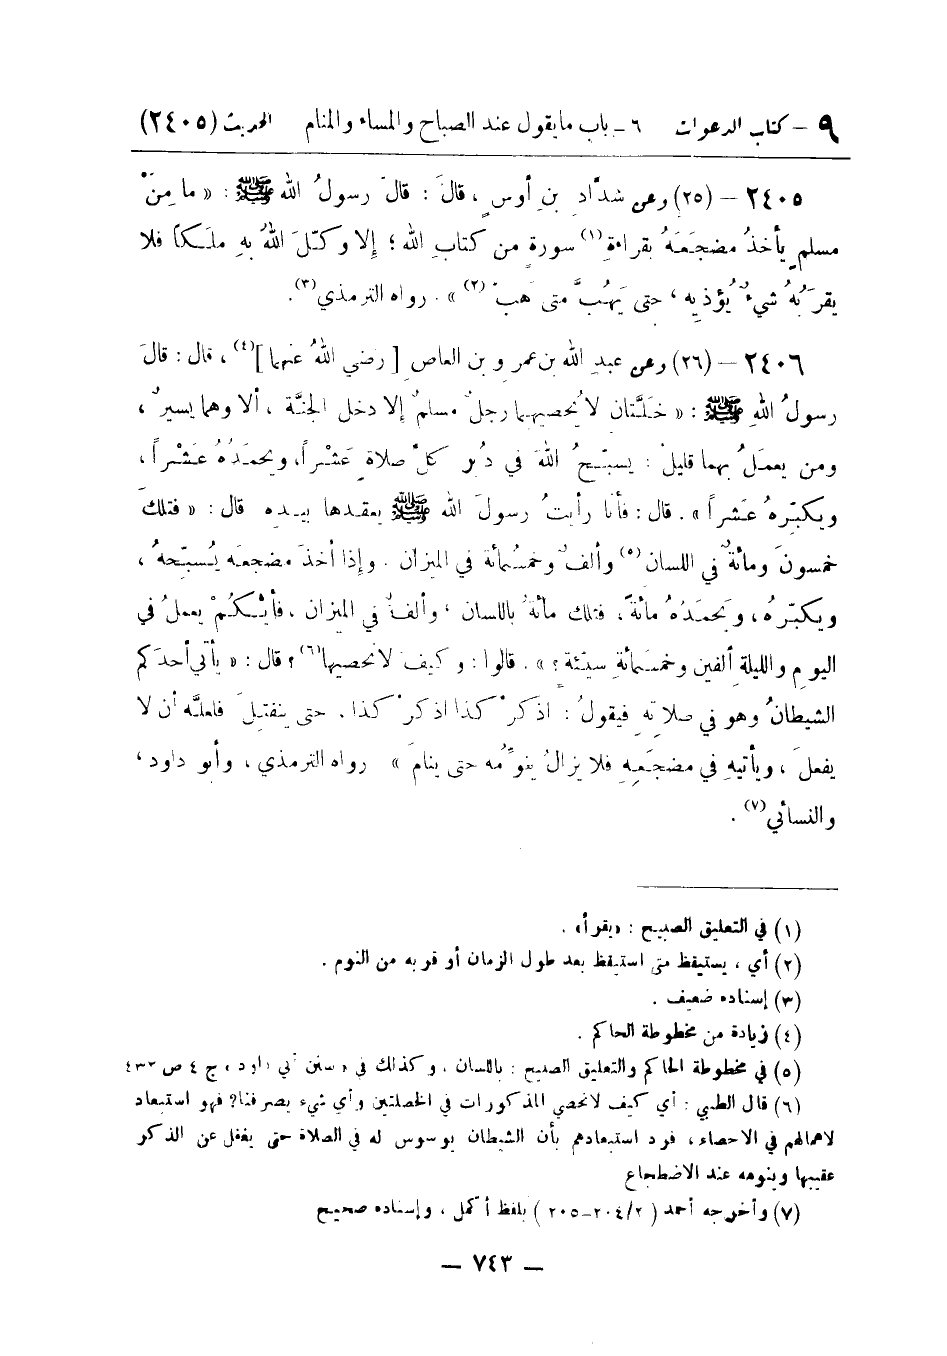 ٩ - كتاب الدعوات ٦ - باب ما يقول عند الصباح والمساء والمنام الحديث (٢٤٠٥)
٢٤٠٥ – (٢٥) وعن شدَّادِ بنِ أوسٍ ، قالَ : قالَ رسولُ اللهِ ﷺ : « ما مِنْ
مسلمٍ يأخذُ مضجَعَهُ بقراءةِ (١) سورةٍ من كتابِ اللهِ ؛ إلا وكَّلَ اللهُ بهِ ملَكاً فلا
يقرَبُهُ شيءٌ يُؤذيهِ ، حتى يَهُبَّ متى هَبَّ (٢) » . رواه الترمذي (٣).
٢٤٠٦ – (٢٦) وعن عبدِ الله بن عمرِو بن العاصِ [ رضي اللهُ عنهما ] (٤) ، قال : قالَ
رسولُ اللهِ ﷺ : « خَلَّتان لا يُحصيهما رجلٌ مسلمٌ إلا دخل الجنَّة ، ألا وهما يسيرٌ ،
ومن يعملُ بهما قليلٌ : يسبِّحُ اللهَ في دُبرِ كلِّ صلاةٍ عَشْراً، ويحمَدُهُ عَشْراً ،
ويكبِّرهُ عَشراً » . قال : فأنا رأيتُ رسولَ الله ﷺ يعقدها بيـده قال : « فتلكَ
خمسونَ ومائةٌ في اللسان (٥) وألفٌ وخمسُمائة في الميزان . وإذا أخذَ مضجعَه يُسبِّحهُ ،
ويكبِّرهُ ، ويَحمَدُهُ مائةً ، فتلك مائةٌ باللسان ، وألفٌ في الميزان ، فأيُّكُمْ يعملُ في
اليومِ والليلةِ ألفين وخمسَمائةِ سيِّئةٍ ؟ » . قالوا : وكيفَ لا نحصيها (٦) ؟ قال : « يأتي أحدَكم
الشيطانُ وهو في صلاتهِ فيقولُ : اذكرْ كذا اذكرْ كذا . حتى ينفتِلَ فلعلَّه أن لا
يفعلَ ، ويأتيهِ في مضجَعِهِ فلا يزالُ ينوِّمُه حتى ينامَ » رواه الترمذي ، وأبو داود ،
والنسائي (٧) .
(١) في التعليق الصبيح : «يقرأ» .
(٢) أي ، يستيقظ متى استيقظ بعد طول الزمان أو قربه من النوم .
(٣) إسناده ضعيف .
(٤) زيادة من مخطوطة الحاكم .
(٥) في مخطوطة الحاكم والتعليق الصبيح : باللسان . وكذلك في «سنن أبي داود» ج ٤ ص ٤٣٢
(٦) قال الطيبي : أي كيف لا نحصي المذكورات في الخصلتين وأي شيء يصرفنا؟ فهو استبعاد
لاهمالهم في الاحصاء ، فرد استبعادهم بأن الشيطان يوسوس له في الصلاة حتى يغفل عن الذكر
عقيبها وينومه عند الاضطجاع
(٧) وأخرجه أحمد ( ٢/ ٢٠٤-٢٠٥ ) بلفظ أكمل ، وإسناده صحيح
— ٧٤٣ —